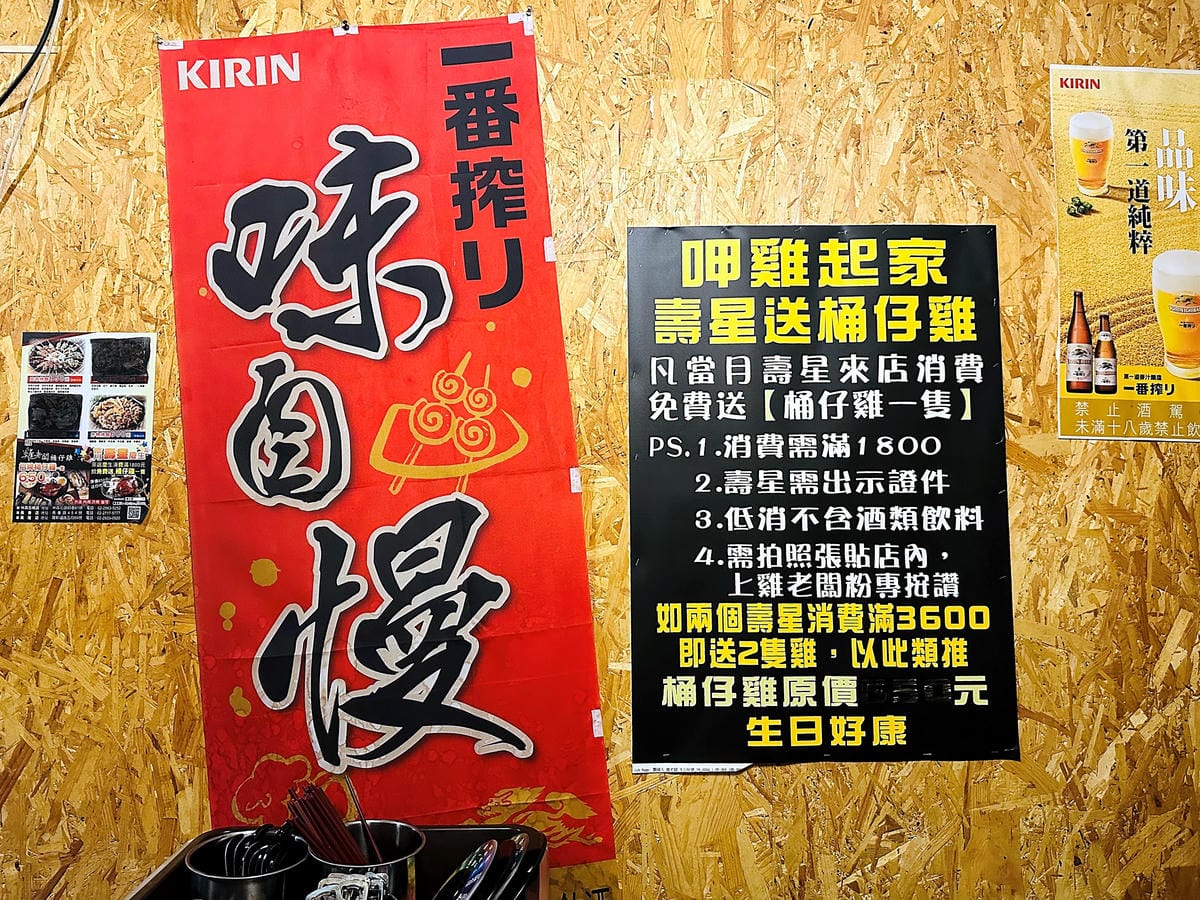 KIRIN
一番搾り
味自慢
呷雞起家
壽星送桶仔雞
凡當月壽星來店消費
免費送【桶仔雞一隻】
PS.1.消費需滿1800
2.壽星需出示證件
3.低消不含酒類飲料
4.需拍照張貼店內，
上雞老闆粉專按讚
如兩個壽星消費滿3600
即送2隻雞，以此類推
桶仔雞原價
元
生日好康
KIRIN
品味
第一道純粹
一番搾り
禁止酒駕
未滿十八歲禁止飲
雞老闆桶仔雞
650